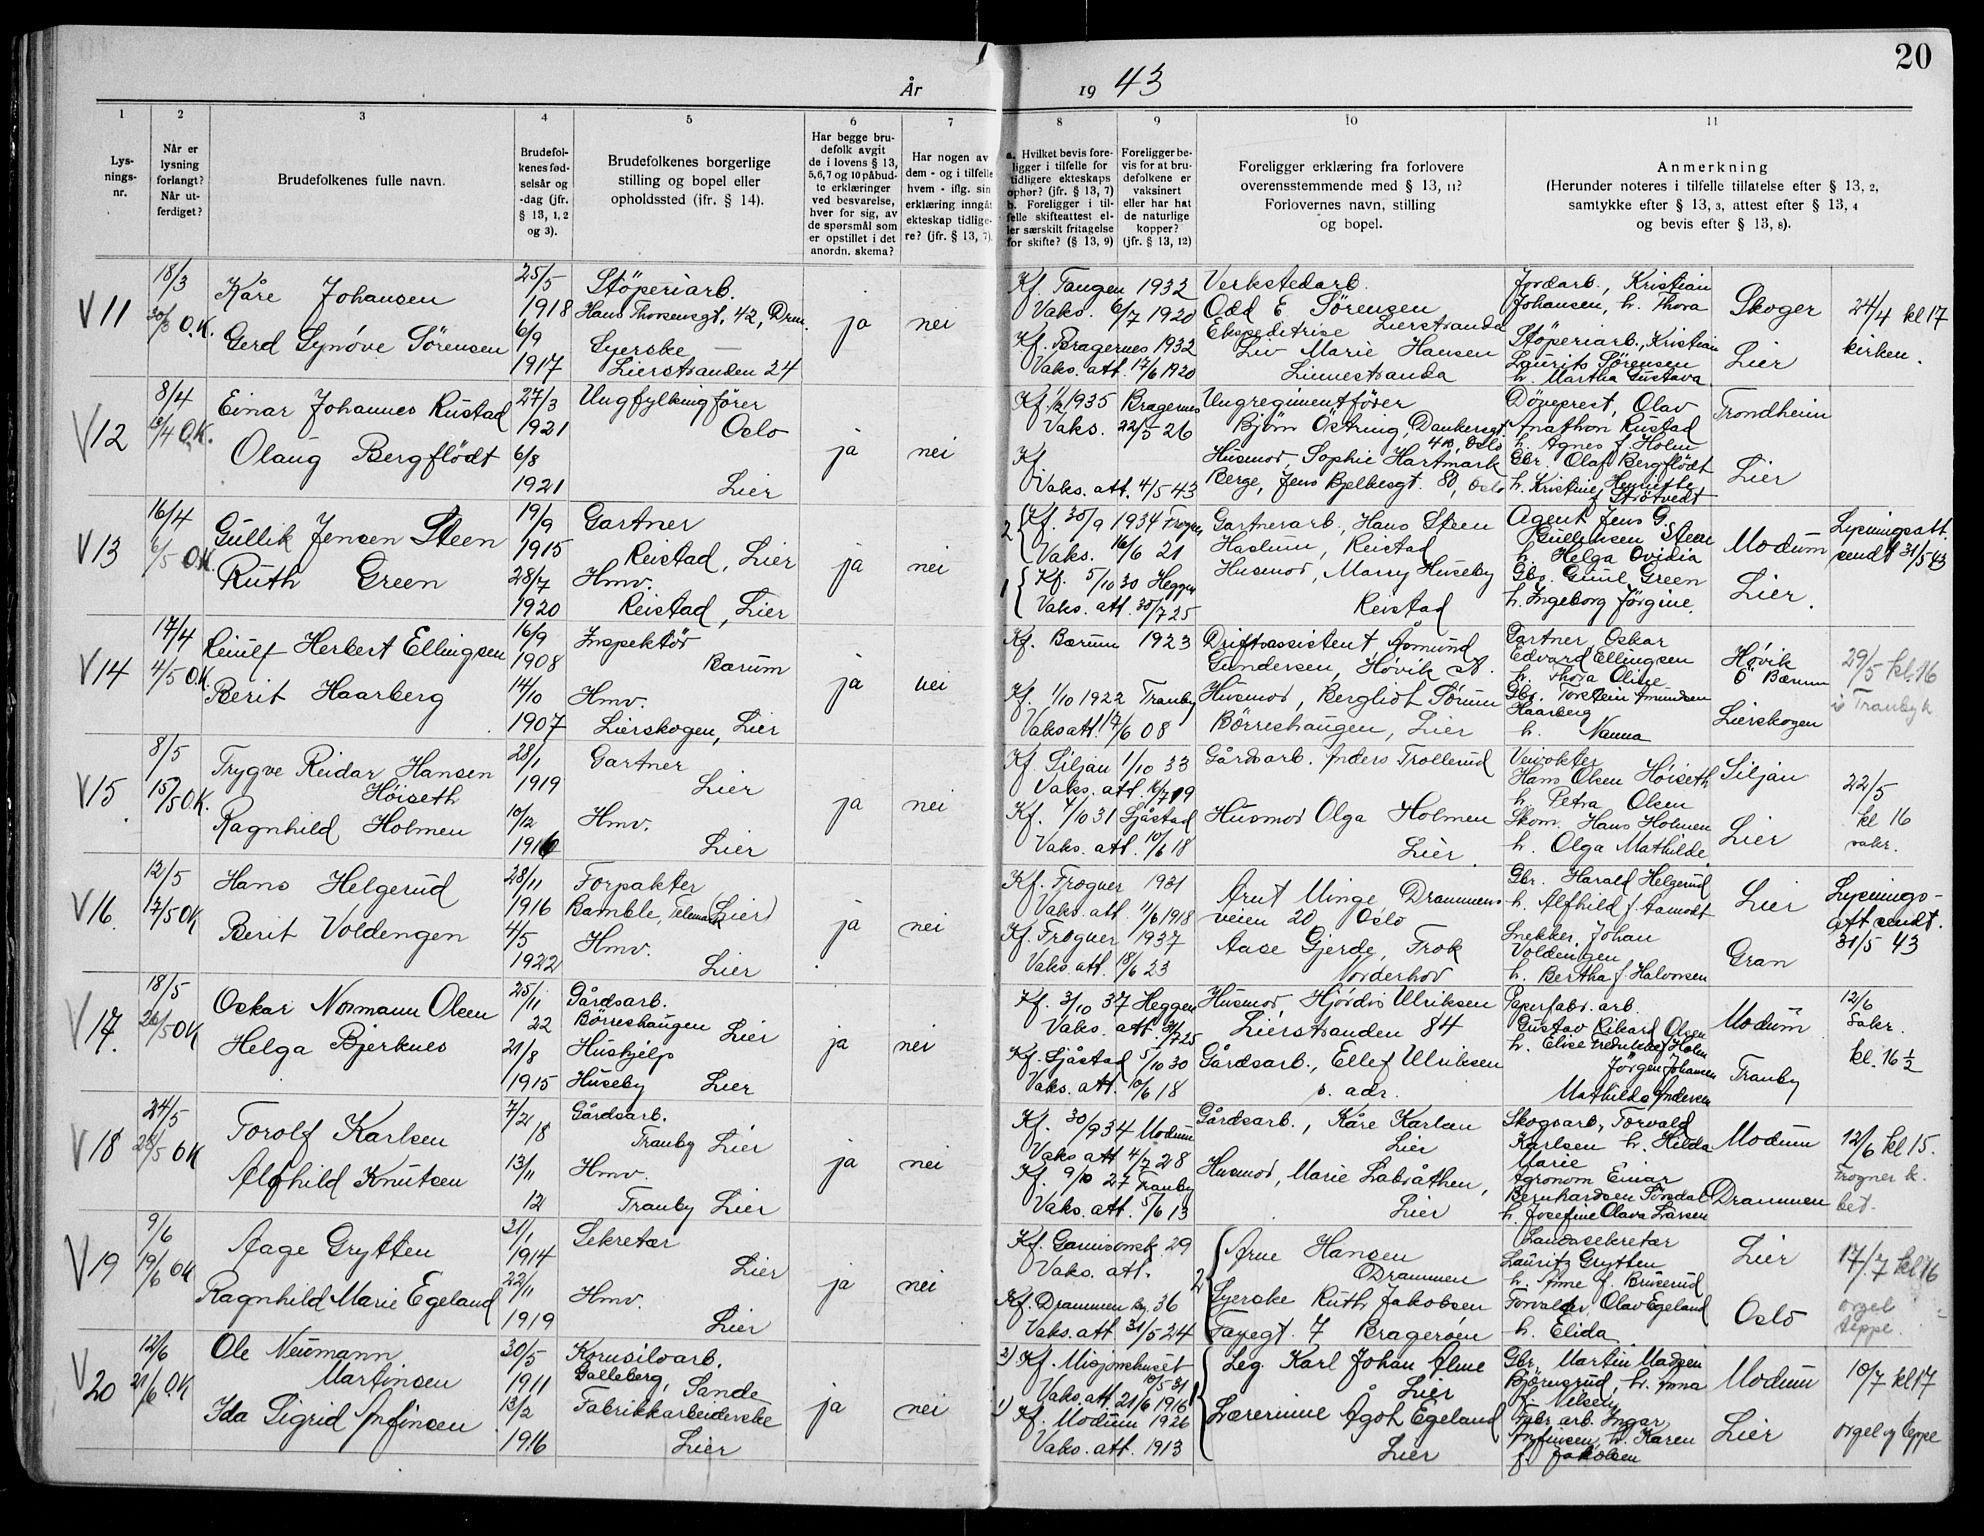 20
År 1943
1 2 3 4 5 6 7 8 9 10 11
Lysningsnr.
Når er lysning forlangt? Når utferdiget?
Brudefolkenes fulle navn.
Brudefolkenes fødselsår og -dag (jfr. § 13, 1, 2 og 3).
Brudefolkenes borgerlige stilling og bopel eller opholdssted (jfr. § 14).
Har begge brudefolk avgit de i lovens § 13, 5,6,7 og 10 påbudte erklæringer ved besvarelse, hver for sig, av de spørsmål som er opstillet i det anordn. skema?
Har nogen av dem - og i tilfelle hvem - iflg. sin erklæring inngåt ekteskap tidligere? (jfr. § 13, 7).
a. Hvilket bevis foreligger i tilfelle for tidligere ekteskaps ophør? (jfr. § 13, 7) b. Foreligger i tilfelle skifteattest eller særskilt fritagelse for skifte? (§ 13, 9)
Foreligger bevis for at brudefolkene er vaksinert eller har hat de naturlige kopper? (jfr. § 13, 12)
Foreligger erklæring fra forlovere overensstemmende med § 13, 11? Forlovernes navn, stilling og bopel.
Anmerkning (Herunder noteres i tilfelle tillatelse efter § 13, 2, samtykke efter § 13, 3, attest efter § 13, 4 og bevis efter § 13, 8).
V 11
18/3
30/3 O.K.
Kåre Johansen
Gerd Synöve Sörensen
25/5 1918
6/9 1917
Stöperiarb.
Hans Thorsensgt. 42, Drm.
Syerske —
Lierstranden 24
ja nei
Kf. Tangen 1932
Vaks. 6/7 1920
Kf. Bragernes 1932
Vaks. att. 17/6 1920
Verkstedarb.
Odd E. Sörensen
Ekspeditrise Lierstranda
Liv Marie Hansen
Linnestranda
Jordarb., Kristian
Johansen, h. Thora
Stöperiarb., Kristian
Laurits Sörensen
h. Martha Gustava
Skoger
Lier
24/4 kl 17
kirken.
V 12
8/4
13/4 O.K.
Einar Johannes Rustad
Olaug Bergflödt
27/3 1921
6/8 1921
Ungfylkingförer
Oslo
Lier
ja nei
Kf. 1/2 1935 Bragernes
Vaks. 22/5 26
Kf
Vaks. att. 4/5 43
Ungregimentförer
Björn Östring, Dunkersgt.
4B, Oslo
Husmor Sophie Hartmark
Berge, Jens Bjelkesgt. 80, Oslo
Döveprest, Olav
Anathon Rustad
h. Agnes f. Holm
Gbr. Olaf Bergflödt
h. Kristine Henriette
f. Strötvedt
Trondheim
Lier
V 13
16/4
6/5 OK
Gullik Jensen Steen
Ruth Green
19/9 1915
28/7 1920
Gartner
Reistad, Lier
Hmv.
Reistad, Lier
ja nei
2 { Kf. 30/9 1934 Frogner
Vaks. 16/6 21
1 { Kf. 5/10 30 Heggen
Vaks. att. 30/7 25
Gartnerarb., Hans Steen
Haslum, Reistad
Husmor, Marry Huseby
Reistad
Agent Jens G.
Gulliksen Steen
h. Helga Ovidia
Gbr. Emil Green
h. Ingeborg Jörgine.
Modum
Lier.
Lysningsatt.
sendt 31/5 43
V 14
17/4
4/5 O.K.
Reiulf Herbert Ellingsen
Berit Haarberg
16/9 1908
14/10 1907
Inspektör
Bærum
Hmv.
Lierskogen, Lier
ja nei
Kf. Bærum 1923
Kf. 1/10 1922 Tranby
Vaks att. 14/6 08
Driftsassistent Åsmund
Gundersen, Hövik st.
Husmor, Bergliot Sørum
Börreshaugen, Lier
Gartner Oskar
Edvard Ellingsen
h. Thora Olise
Gbr. Torstein Amundsen
Haarberg
h. Nanna
Hövik
Ö. Bærum
Lierskogen
29/5 kl. 16
i Tranby k
V 15
8/5
15/5 O.K.
Trygve Reidar Hansen
Höiseth
Ragnhild Holmen
28/1 1919
10/12 1916
Gartner
Lier
Hmv.
Lier
ja nei
Kf. Siljan 1/10 33
Vaks. att. 16/7 19
Kf. 4/10 31 Sjåstad
Vaks. att. 10/6 18
Gårdsarb. Anders Trollerud
Husmor Olga Holmen
Lier.
Veivokter
Hans Olsen Höiseth
h. Petra Olsen
Skom. Hans Holmen
h. Olga Mathilde
Siljan
Lier
22/5
kl 16
sakr.
V 16.
12/5
17/5 OK
Hans Helgerud
Berit Voldengen
28/11 1916
4/5 1922
Forpakter
Bamble, Telemark (Lier)
Hmv.
Lier
ja nei
Kf. Frogner 1931
Vaks. att. 11/6 1918
Kf. Frogner 1937
Vaks. att. 18/6 23
Arnt Minge Drammens
veien 20, Oslo
Aase Gjerde, Trok
Norderhov
Gbr. Harald Helgerud
h. Alfhild f. Aamodt
Snekker, Johan
Voldengen
h. Bertha f. Halvorsen
Lier
Gran
Lysnings-
att. sendt.
31/5 43
V 17.
18/5
26/5 OK
Oskar Normann Olsen
Helga Bjerknes
25/11 22
21/8 1915
Gårdsarb.
Börreshaugen Lier
Hushjelp
Huseby Lier
ja nei
Kf. 3/10 37 Heggen
Vaks. att. 31/7 25
Kf. Sjåstad 5/10 30
Vaks. att. 10/6 18
Husmor, Hjördis Ulriksen
Lierstranden 84
Gårdsarb., Ellef Ulriksen
s. adr.
Papirfabr. arb.
Gustav Rikard Olsen
h. Elise Fredrikke f. Holm
Jörgen Johansen
Mathilde Andersen
Modum
Tranby
12/6
Sakr.
kl. 16 ½
V 18
24/5
28/5 OK
Torolf Karlsen
Alfhild Knutsen
7/21 18
13/11 12
Gårdsarb.
Tranby Lier
Hmv.
Tranby Lier
ja nei
Kf. 30/9 34 Modum
Vaks att 4/7 28
Kf. 9/10 27 Tranby
Vaks. att. 5/6 13
Gårdsarb., Kåre Karlsen
Lier
Husmor, Marie Labråthen,
Lier
Skogsarb, Torvald
Karlsen h. Hilda
Marie
Agronom Einar
Bernhardsen Sörsdal
h. Josefine Olava Larsen
Modum
Drammen
12/6 kl 15.
Frogner k.
bet.
V 19
9/6
19/6 OK
Aage Grytten
Ragnhild Marie Egeland
31/1 1914
22/11 1919
Sekretær
Lier
Hmv.
Lier
ja nei
Kf. Garnisonsk 29
Vaks. att.
Kf. Drammen by 36
Vaks. att 31/5 24
2 { Arne Hansen
Drammen
Syerske Ruth Jakobsen
Tapegt. 7 Bragerøen
Landssekretær
Lauritz Grytten
h. Anne f. Bruserud
Forvalter, Olav Egeland
h. Elida
Lier
Oslo
17/7 kl 16
orgel
teppe.
V 20
12/6
21/6 O.K
Ole Neumann
Martinsen
Ida Sigrid Anfinsen
30/5 1911
13/2 1916
Kornsiloarb.
Galleberg, Sande
Fabrikkarbeiderske
Lier
ja nei
2) Kf. Misjonshuset
10/5 31
Vaks. att. 21/6 1916
1) Kf. Modum 1926
Vaks. att. 1913
1 { Leg. Karl Johan Alme
Lier
Lærerinne Ågot Egeland
Lier
Gbr. Martin Madsen
Björnerud, h. Anna
f. Nilsen
Fabr. arb. Ingar
Anfinsen, h. Karen
f. Jakobsen
Modum
Lier
10/7 kl 17
orgel og teppe